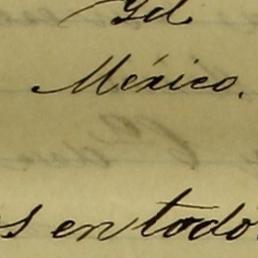 México.
s en todo